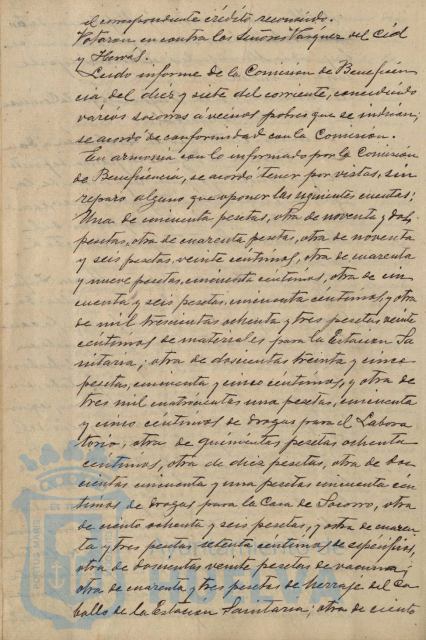 el correspondiente crédito reconocido.
Votaron en contra los Señores Vázquez del Cid
y Hervás.
Leido informe de la Comisión de Beneficen-
cia del diez y siete del corriente, concediendo
varios socorros á vecinos pobres que se indican,
se acordó de conformidad con la Comisión.
En armonía con lo informado por la Comisión
de Beneficencia, se acordó tener por vistas, sin
reparo alguno que oponer las siguientes cuentas:
Una de cincuenta pesetas, otra de noventa y dos
pesetas, otra de cuarenta pesetas, otra de noventa
y seis pesetas, veinte céntimos, otra de cuarenta
y nueve pesetas, cincuenta céntimos, otra de cin-
cuenta y seis pesetas, cincuenta céntimos, y otra
de mil trescientas ochenta y tres pesetas, veinte
céntimos de materiales para la Estación Sa-
nitaria; otra de doscientas treinta y cinco
pesetas, cincuenta y cinco céntimos, y otra de
tres mil cuatrocientas una pesetas, cincuenta
y cinco céntimos de drogas para el Labora-
torio; otra de quinientas pesetas ochenta
céntimos, otra de diez pesetas, otra de dos-
cientas cincuenta y una pesetas cincuenta cén-
timos de drogas para la Casa de Socorro, otra
de ciento ochenta y seis pesetas, y otra de cuaren-
ta y tres pesetas setenta céntimos de específicos,
otra de doscientas veinte pesetas de vacuna;
otra de cuarenta y tres pesetas de herraje del Ca-
ballo de la Estación Sanitaria; otra de ciento